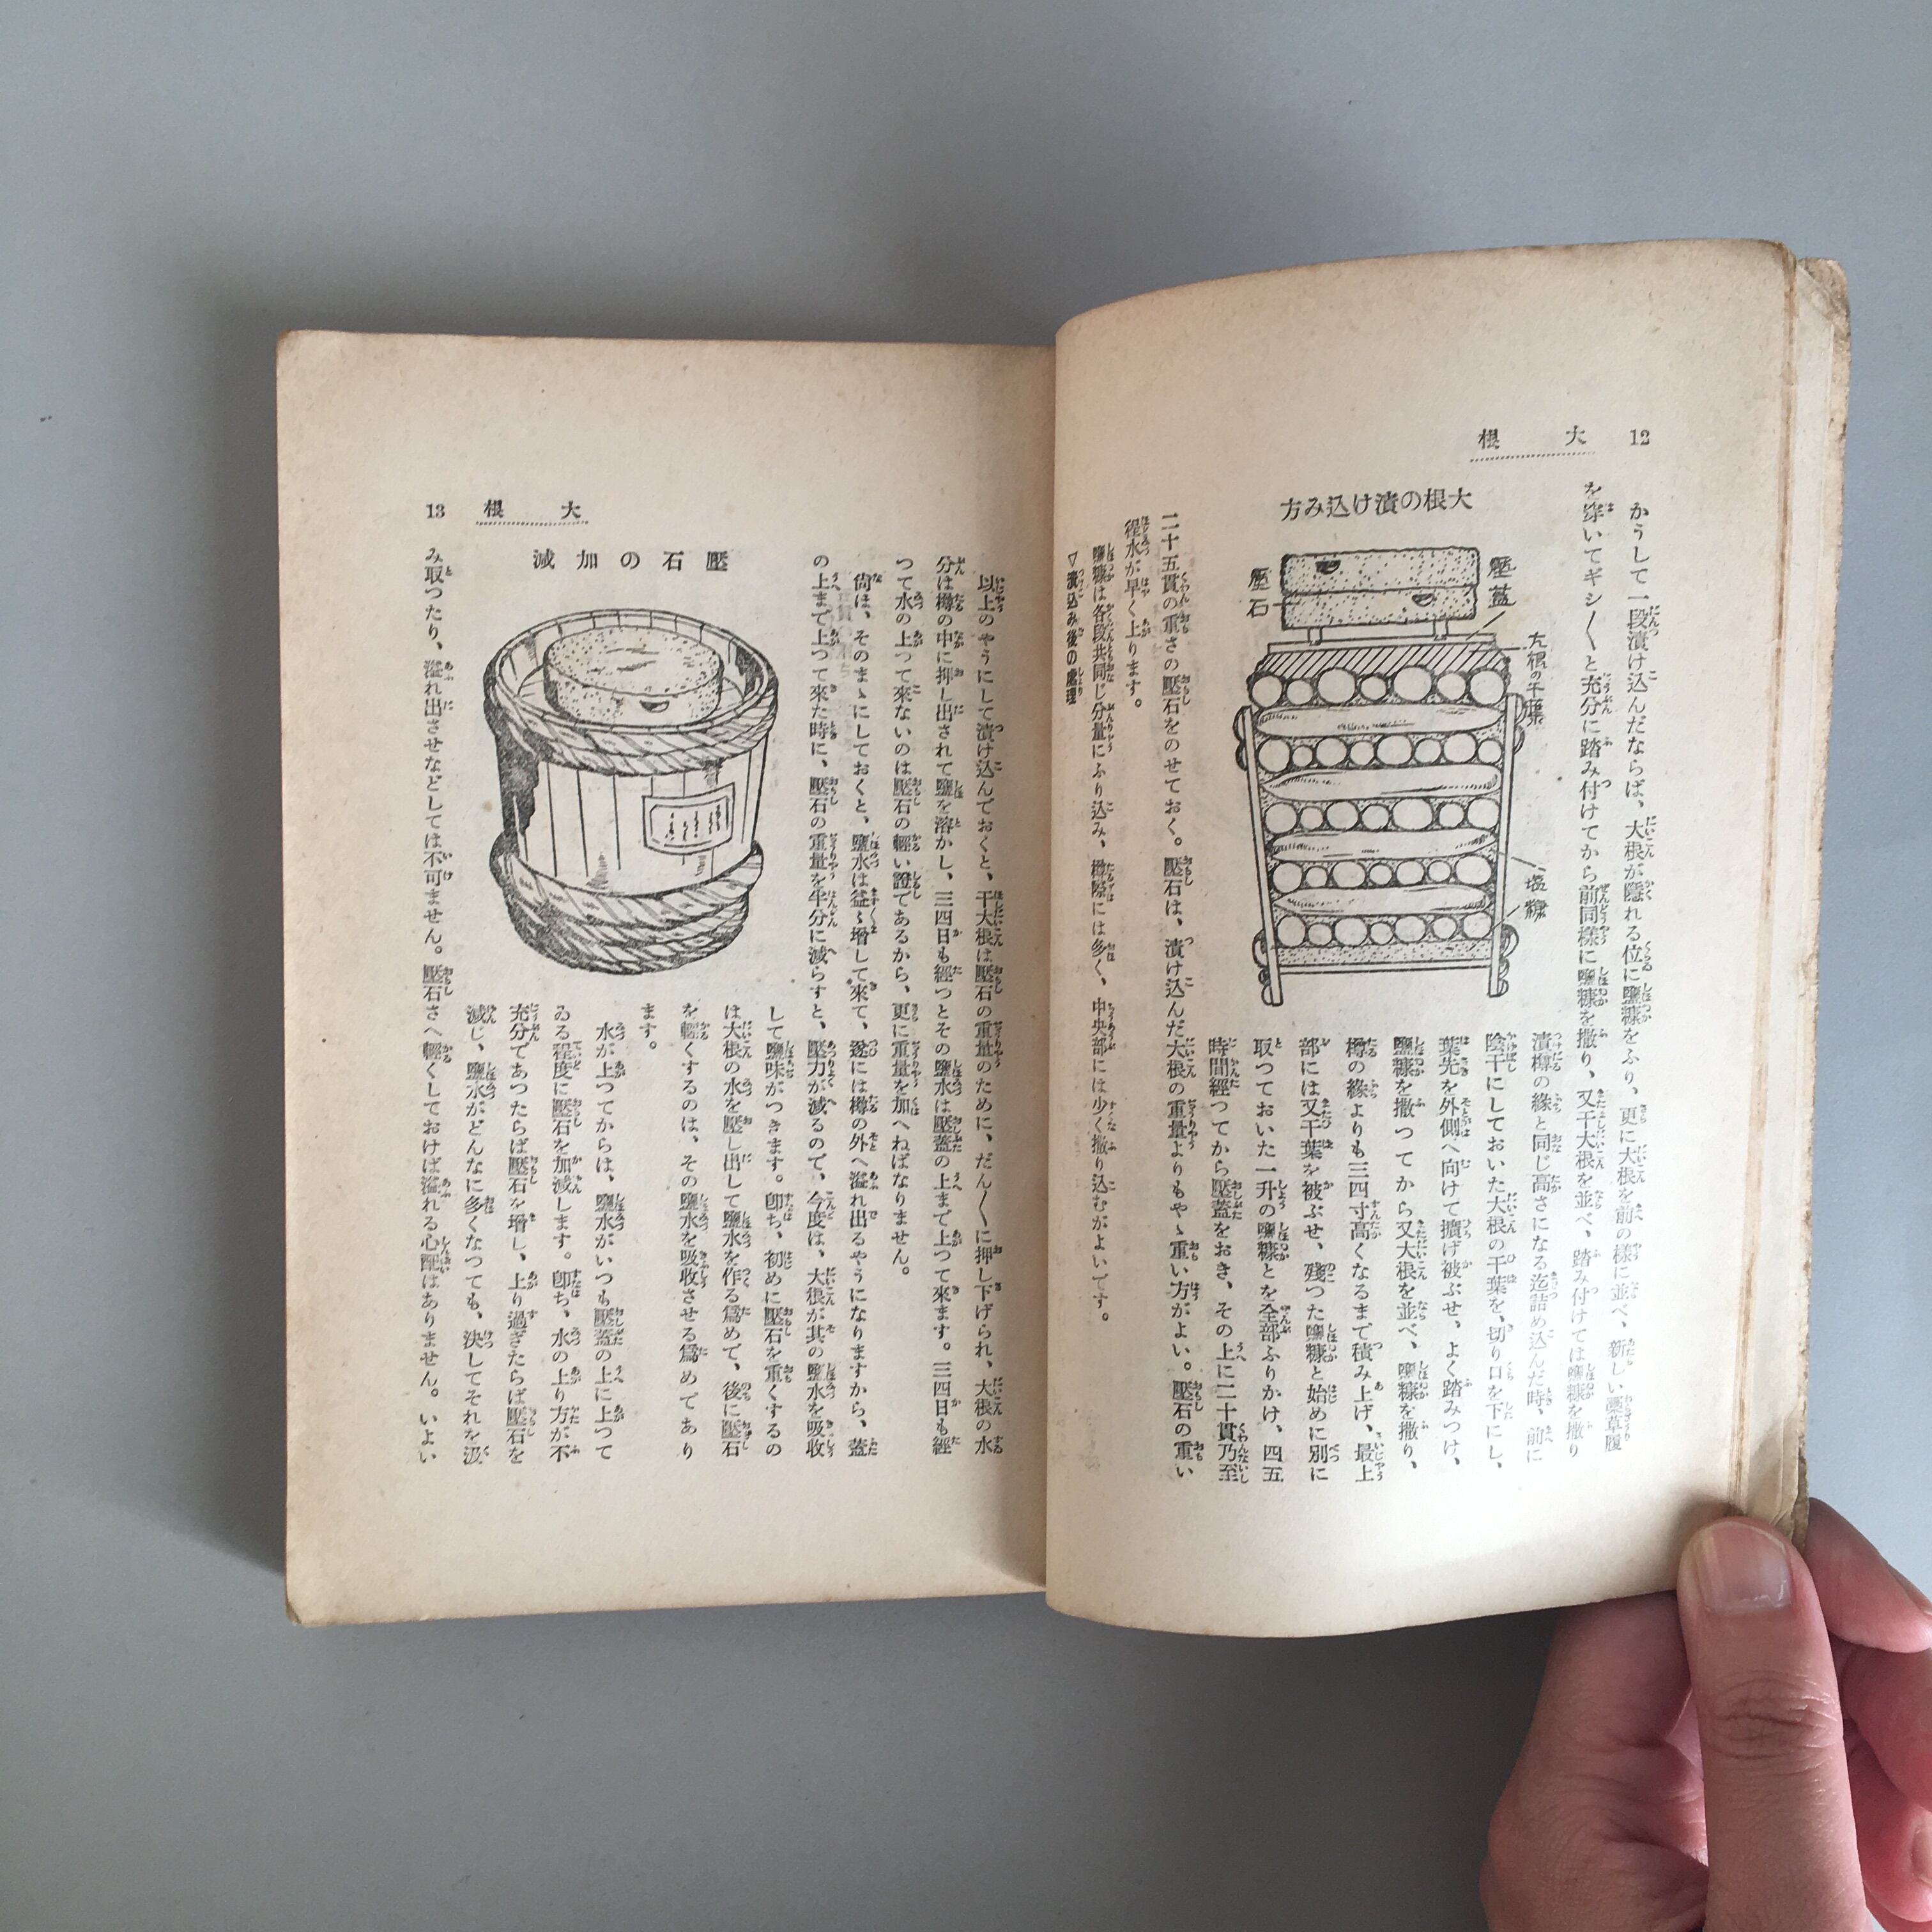 12　大根
かうして一段漬け込んだならば、大根が隱れる位に鹽糠をふり、更に大根を前の樣に並べ、新しい藁草履
を穿いてギシ〳〵と充分に踏み付けてから前同樣に鹽糠を撒り、又干大根を並べ、踏み付けては鹽糠を撒り
大根の漬け込み方
壓蓋
壓石
大根の干葉
塩糠
漬樽の緣と同じ高さになる迄詰め込んだ時、前に
陰干にしておいた大根の干葉を、切り口を下にし、
葉先を外側へ向けて擴げ被ぶせ、よく踏みつけ、
鹽糠を撒つてから又大根を並べ、鹽糠を撒り、
樽の緣よりも三四寸高くなるまで積み上げ、最上
部には又干葉を被ぶせ、殘つた鹽糠と始めに別に
取つておいた一升の鹽糠とを全部ふりかけ、四五
時間經つてから壓蓋をおき、その上に二十貫乃至
二十五貫の重さの壓石をのせておく。壓石は、漬け込んだ大根の重量よりもやゝ重い方がよい。壓石の重い
程水が早く上ります。
鹽糠は各段共同じ分量にふり込み、樽際には多く、中央部には少く撒り込むがよいです。
▽漬込み後の處理
大根　13
以上のやうにして漬け込んでおくと、干大根は壓石の重量のために、だん〳〵に押し下げられ、大根の水
分は樽の中に押し出されて鹽を溶かし、三四日も經つとその鹽水は壓蓋の上まで上つて來ます。三四日も經
つて水の上つて來ないのは壓石の輕い證であるから、更に重量を加へねばなりません。
尙ほ、そのまゝにしておくと、鹽水は益〻增して來て、遂には樽の外へ溢れ出るやうになりますから、蓋
の上まで上つて來た時に、壓石の重量を半分に減らすと、壓力が減るので、今度は、大根が其の鹽水を吸收
壓石の加減
して鹽味がつきます。卽ち、初めに壓石を重くするの
は大根の水を壓し出して鹽水を作る爲めで、後に壓石
を輕くするのは、その鹽水を吸收させる爲めであり
ます。
水が上つてからは、鹽水がいつも壓蓋の上に上つて
ゐる程度に壓石を加減します。卽ち、水の上り方が不
充分であつたらば壓石を增し、上り過ぎたらば壓石を
減じ、鹽水がどんなに多くなつても、決してそれを汲
み取つたり、溢れ出させなどしては不可ません。壓石さへ輕くしておけば溢れる心配はありません。いよい